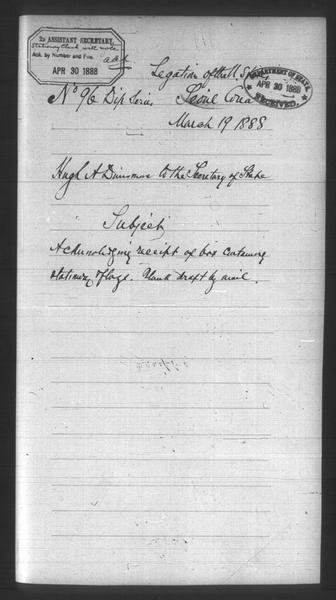 2D ASSISTANT SECRETARY,
Stationery Clerk will note
Ack. by Number and File.
APR 30 1888
ack
Legation of the U. States
DEPARTMENT OF STATE,
APR 30 1888
RECEIVED.
No 96 Dip Series
Seoul Corea
March 19 1888
Hugh A Dinsmore to the Secretary of State
Subject;
Acknowledging receipt of box containing
stationery & flags. Blank draft by mail.